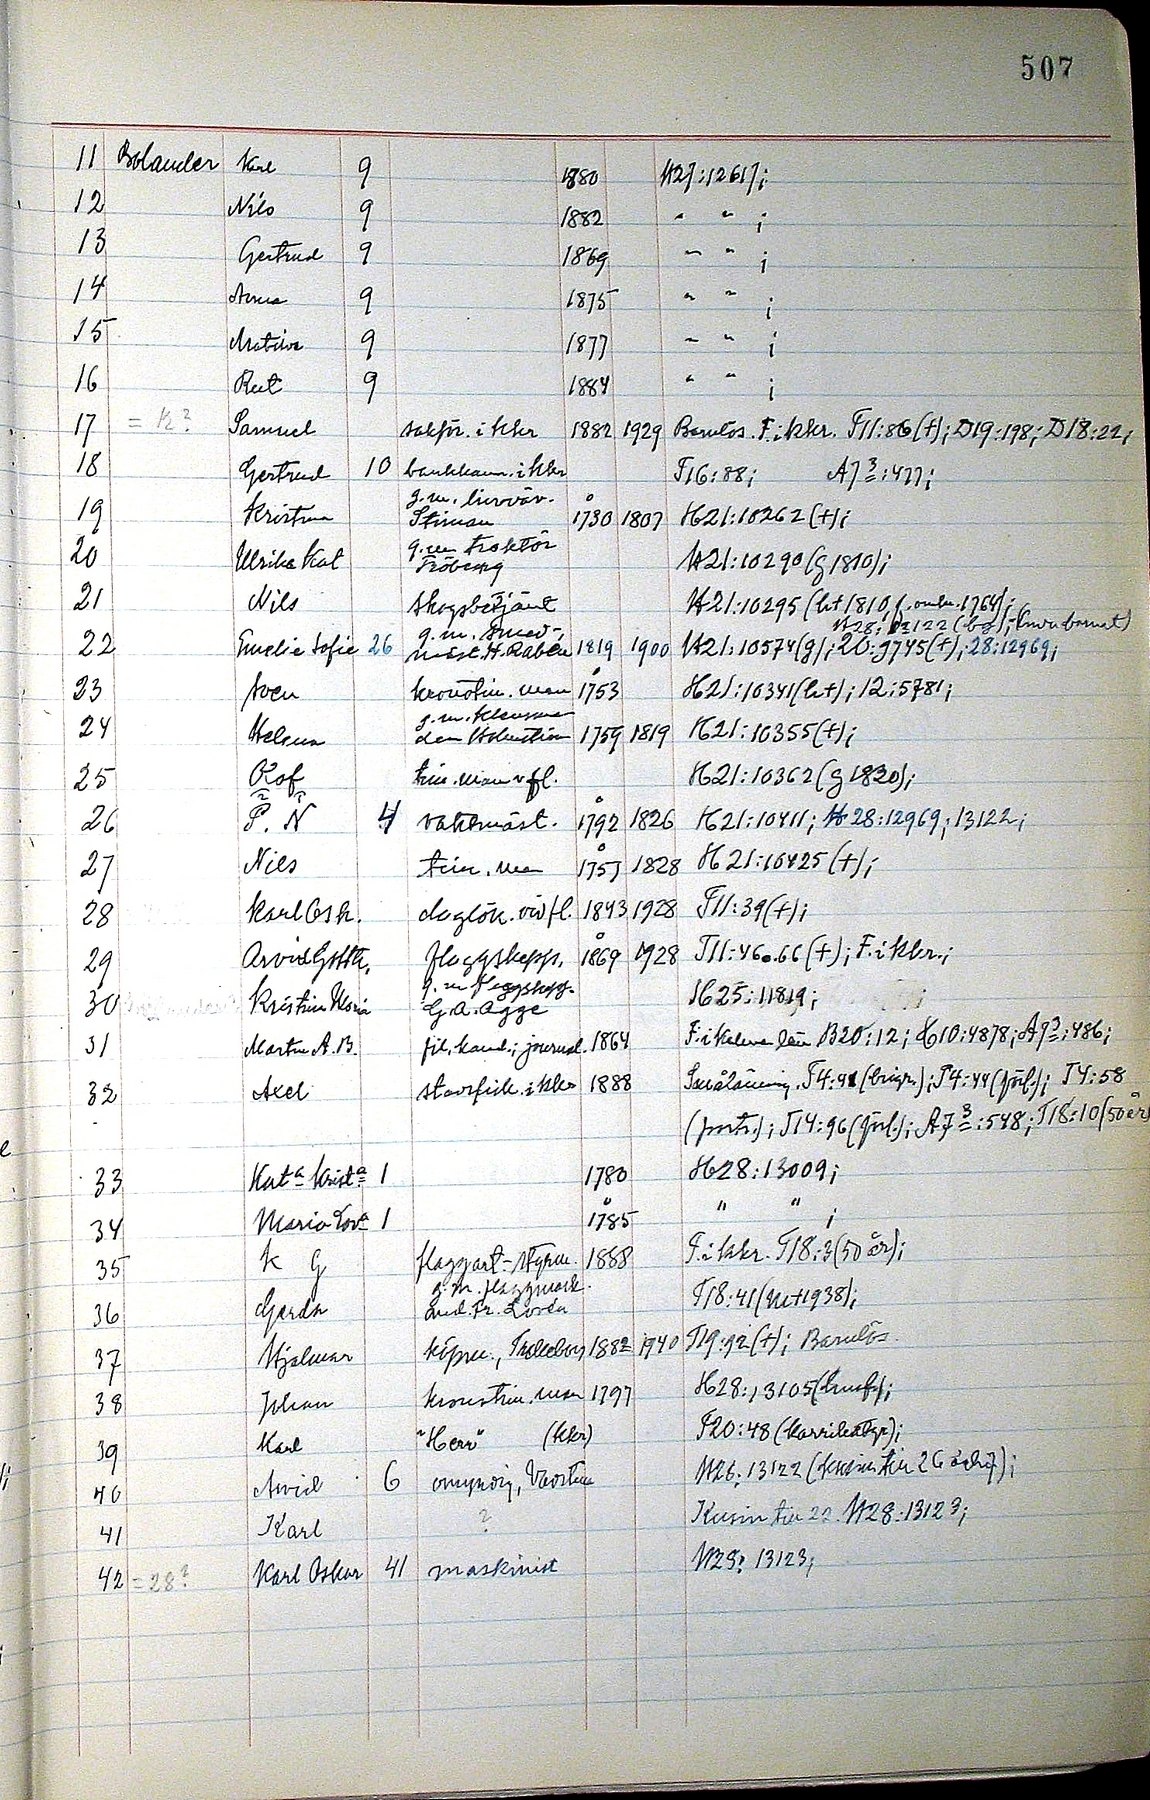 507
11 Bolander Karl 9 1880 H27:12617;
12 Nils 9 1882 " " ;
13 Gertrud 9 1869 " " ;
14 Anna 9 1875 " " ;
15 Matilda 9 1877 " " ;
16 Rut 9 1884 " " ;
17 = K? Samuel sakför. i Kkr 1882 1929 Barnlös. F. i Kkr. T11:86(+); D19:198; D18:22;
18 Gertrud 10 bankkam. i Kkr T16:88; A7 3:477;
19 Kristina g.m. linväv. Stiman 1730 1807 H21:10262(+);
20 Ulrika Kat g.m. traktör Fröberg H21:10290(g 1810);
21 Nils skogsbetjänt H21:10295
22 Emelie Sofie 26 g.m. smed-mäst. H. Rabén 1819 1900 H21:10574(g); 20:9745(+); 28:12969;
23 Sven kronotim.man 1753 H21:10341 12:5781;
24 Helena g.m. 1759 1819 H21:10355(+);
25 Olof tim.man v fl. H21:10362(g 1820);
26 P. N 4 vaktmäst. 1792 1826 H21:10411; H28:12969; 13122;
27 Nils tim.man 1757 1828 H21:10425(+);
28 Karl Osk. daglön. vid fl. 1843 1928 T11:39(+);
29 Arvid Gotth. flaggskepp. 1869 1928 T11:46.66(+); F. i Kkr.;
30 Kristina Maria g.m. flaggskepp. G.A. Agge H25:11819;
31 Martin A.B. fil. kand.; journal. 1864 F. i Kalmar län B20:12; H10:4878; A7 3:486;
32 Axel i Kkr 1888 T4:44 T4:58
(portr.); T14:96 A7 3:548; T18:10(50 år)
33 Kata Krista 1 1780 H28:13009;
34 Maria Lova 1 1785 " " ;
35 K G flaggart.-styrm. 1888 F. i Kkr. T18:3(50 år);
36 Gerda g.m. flaggmask. T18:41
37 Hjalmar köpm., Trelleborg 1882 1940 T19:92(+); Barnlös.
38 Johan kronotim.man 1797 H28:13105
39 Karl "Herr" (Kkr) T20:48(karrikatyr);
40 Arvid 6 omyndig, H28:13122
41 Karl ? Kusin till 22. H28:13123;
42 = 28? Karl Oskar 41 maskinist H28:13123;